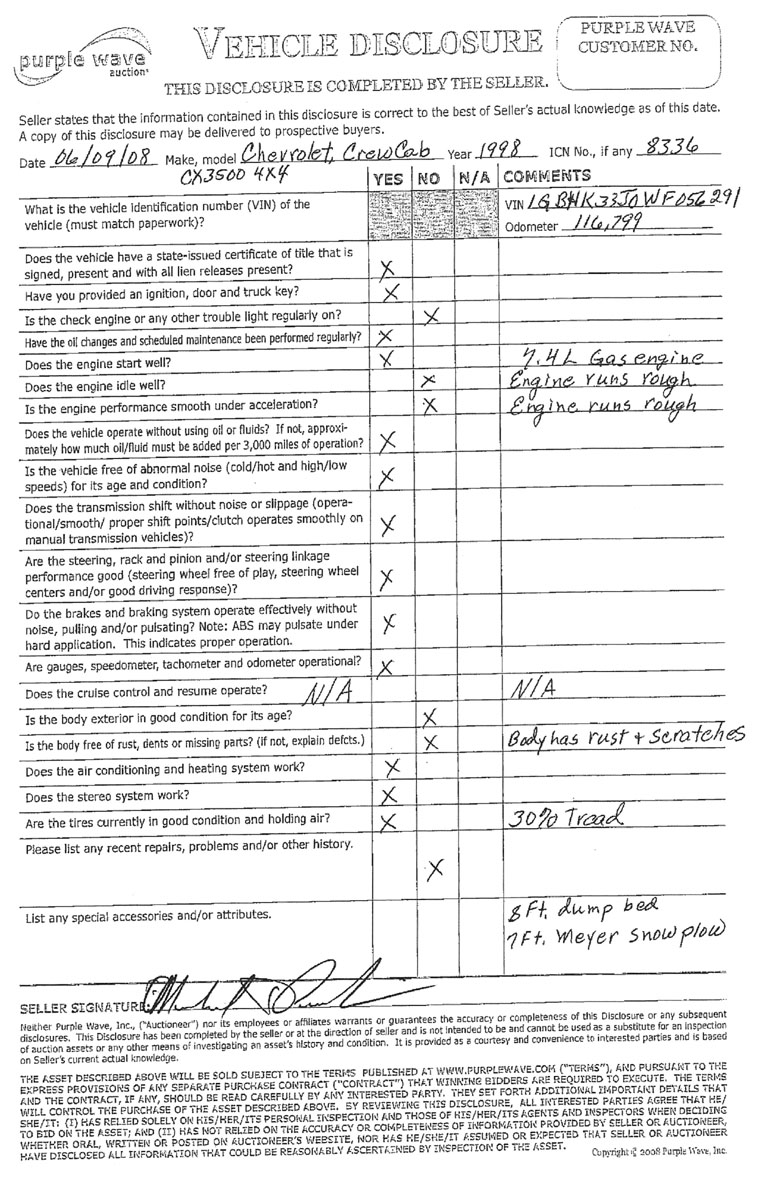 purple wave
auction
VEHICLE DISCLOSURE
PURPLE WAVE
CUSTOMER NO.
THIS DISCLOSURE IS COMPLETED BY THE SELLER.
Seller states that the information contained in this disclosure is correct to the best of Seller's actual knowledge as of this date.
A copy of this disclosure may be delivered to prospective buyers.
Date 06/09/08 Make, model Chevrolet, Crew Cab Year 1998 ICN No., if any 8336
CX3500 4X4
YES NO N/A COMMENTS
What is the vehicle identification number (VIN) of the
vehicle (must match paperwork)?
VIN 1GBHK33J0WF056291
Odometer 116,799
Does the vehicle have a state-issued certificate of title that is
signed, present and with all lien releases present? X
Have you provided an ignition, door and truck key? X
Is the check engine or any other trouble light regularly on? X
Have the oil changes and scheduled maintenance been performed regularly? X
Does the engine start well? X 7.4L Gas engine
Does the engine idle well? X Engine runs rough
Is the engine performance smooth under acceleration? X Engine runs rough
Does the vehicle operate without using oil or fluids? If not, approxi-
mately how much oil/fluid must be added per 3,000 miles of operation? X
Is the vehicle free of abnormal noise (cold/hot and high/low
speeds) for its age and condition? X
Does the transmission shift without noise or slippage (opera-
tional/smooth/ proper shift points/clutch operates smoothly on
manual transmission vehicles)? X
Are the steering, rack and pinion and/or steering linkage
performance good (steering wheel free of play, steering wheel
centers and/or good driving response)? X
Do the brakes and braking system operate effectively without
noise, pulling and/or pulsating? Note: ABS may pulsate under
hard application. This indicates proper operation. X
Are gauges, speedometer, tachometer and odometer operational? X
Does the cruise control and resume operate? N/A N/A
Is the body exterior in good condition for its age? X
Is the body free of rust, dents or missing parts? (if not, explain defcts.) X Body has rust + scratches
Does the air conditioning and heating system work? X
Does the stereo system work? X
Are the tires currently in good condition and holding air? X 30% Tread
Please list any recent repairs, problems and/or other history.
X
List any special accessories and/or attributes.
8 Ft. dump bed
7 Ft. Meyer Snow plow
SELLER SIGNATURE:
Neither Purple Wave, Inc., ("Auctioneer") nor its employees or affiliates warrants or guarantees the accuracy or completeness of this Disclosure or any subsequent
disclosures. This Disclosure has been completed by the seller or at the direction of seller and is not intended to be and cannot be used as a substitute for an inspection
of auction assets or any other means of investigating an asset's history and condition. It is provided as a courtesy and convenience to interested parties and is based
on Seller's current actual knowledge.
THE ASSET DESCRIBED ABOVE WILL BE SOLD SUBJECT TO THE TERMS PUBLISHED AT WWW.PURPLEWAVE.COM ("TERMS"), AND PURSUANT TO THE
EXPRESS PROVISIONS OF ANY SEPARATE PURCHASE CONTRACT ("CONTRACT") THAT WINNING BIDDERS ARE REQUIRED TO EXECUTE. THE TERMS
AND THE CONTRACT, IF ANY, SHOULD BE READ CAREFULLY BY ANY INTERESTED PARTY. THEY SET FORTH ADDITIONAL IMPORTANT DETAILS THAT
WILL CONTROL THE PURCHASE OF THE ASSET DESCRIBED ABOVE. BY REVIEWING THIS DISCLOSURE, ALL INTERESTED PARTIES AGREE THAT HE/
SHE/IT: (I) HAS RELIED SOLELY ON HIS/HER/ITS PERSONAL INSPECTION AND THOSE OF HIS/HER/ITS AGENTS AND INSPECTORS WHEN DECIDING
TO BID ON THE ASSET; AND (II) HAS NOT RELIED ON THE ACCURACY OR COMPLETENESS OF INFORMATION PROVIDED BY SELLER OR AUCTIONEER,
WHETHER ORAL, WRITTEN OR POSTED ON AUCTIONEER'S WEBSITE, NOR HAS HE/SHE/IT ASSUMED OR EXPECTED THAT SELLER OR AUCTIONEER
HAVE DISCLOSED ALL INFORMATION THAT COULD BE REASONABLY ASCERTAINED BY INSPECTION OF THE ASSET.
Copyright © 2008 Purple Wave, Inc.